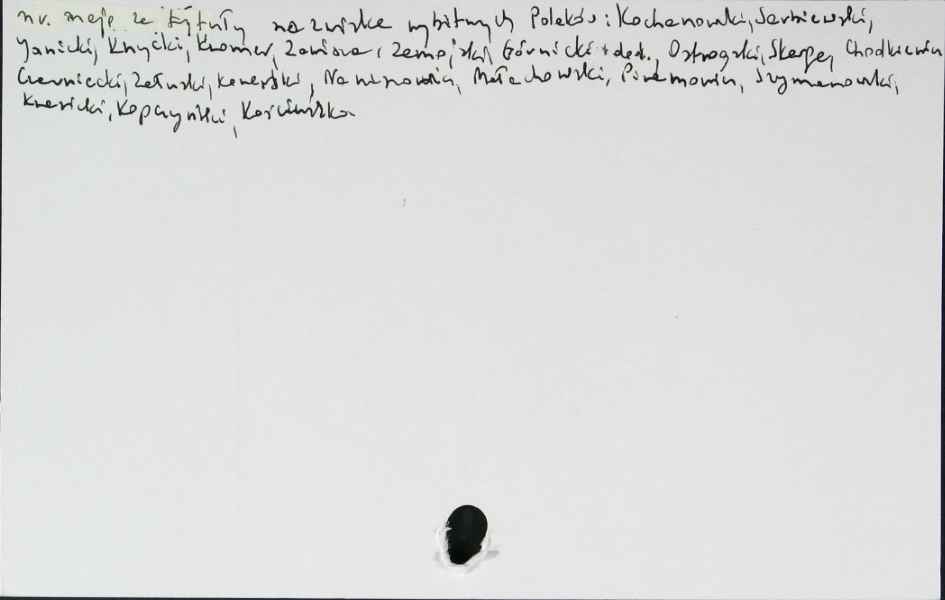 nr. mają za tytuły nazwiska wybitnych Polaków: Kochanowski, Sarbiewski,
Janicki, Krzycki, Kromer, Zamoyski, Górnicki + ded., Ostrogski, Skarga, Chodkiewicz
Czarniecki, Załuski, Konarski, Naruszewicz, Małachowski, Piramowicz, Szymanowski,
Krasicki, Kopczyński, Kościuszko